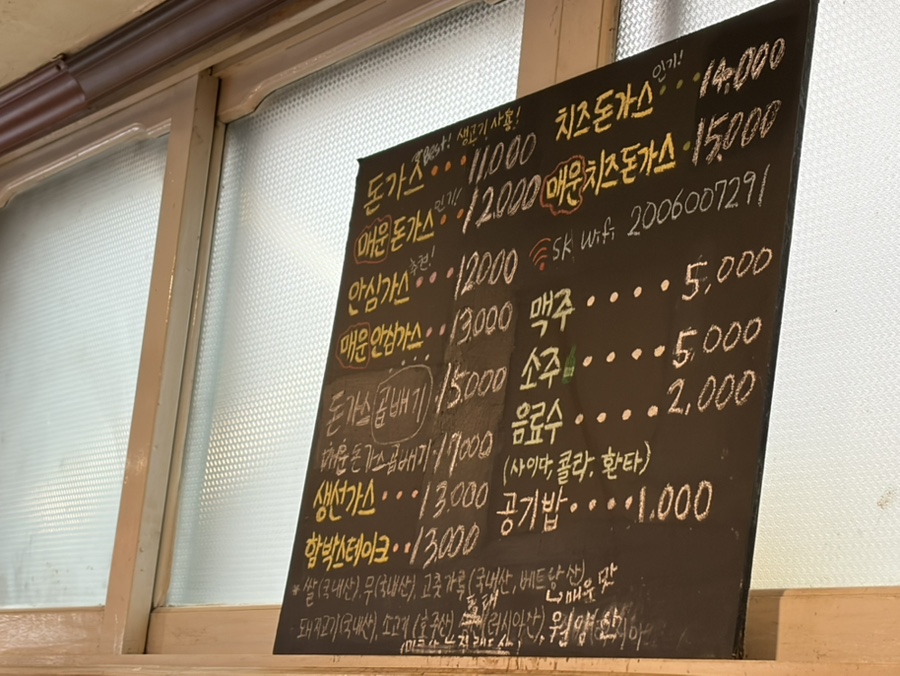 Best! 생고기 사용!
돈가스 ・・・ 11,000
인기!
매운돈가스 ・・ 12,000
추천!
안심가스 ・・・ 12000
매운안심가스 ・・ 13,000
돈가스곱배기 ・15,000
매운돈가스곱배기・17000
생선가스 ・・・ 13,000
함박스테이크 ・・ 13,000
인기!
치즈돈가스 ・・・ 14,000
매운치즈돈가스 ・15,000
SK Wifi 2006007291
맥주 ・・・・ 5,000
소주 ・・・・ 5,000
음료수 ・・・・ 2,000
(사이다, 콜라, 환타)
공기밥 ・・・・ 1,000
* 쌀(국내산), 무(국내산), 고춧가루(국내산, 베트남산)
매운맛
돼지고기(국내산), 소고기(호주산) 동태(러시아산),